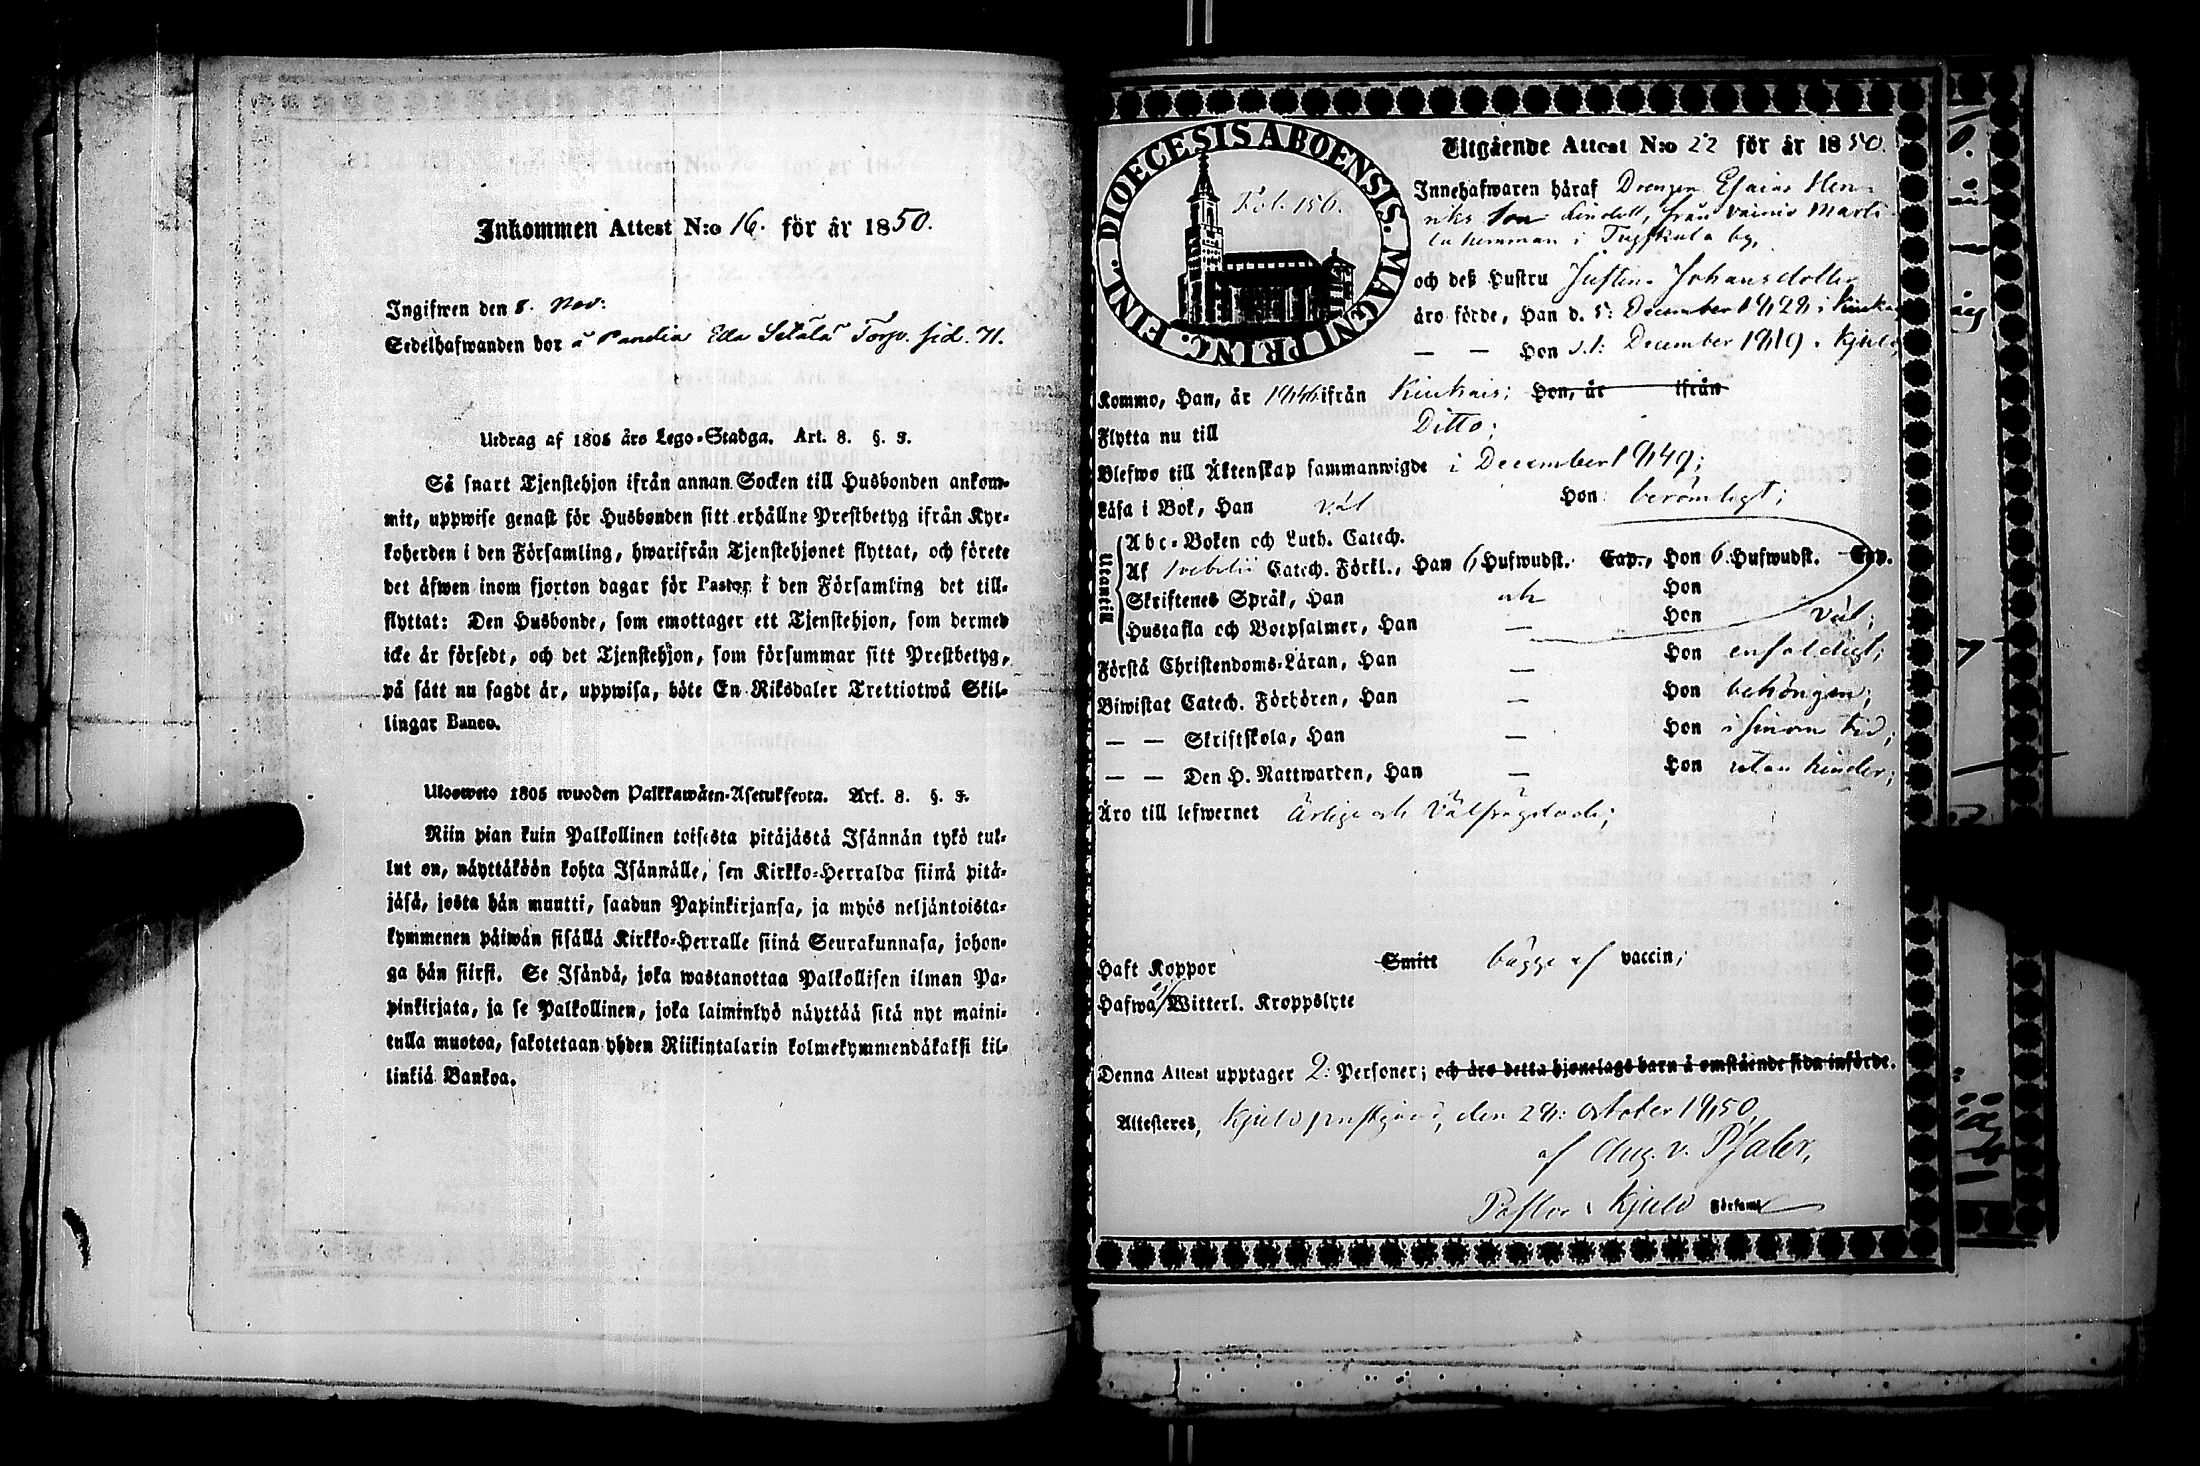 Inkommen Attest N:o 16. för år 1850.
Ingifwen den 8. Nov:
Sedelhafwanden bor å Pandia Ella Setälä Torp. sid. 71.
Utdrag af 1805 års Lego-Stadga. Art. 8. §. 3.
Så snart Tjenstehjon ifrån annan Socken till Husbonden ankom-
mit, uppwise genast för Husbonden sitt erhållne Prestbetyg ifrån Kyr-
koherden i den Församling, hwarifrån Tjenstehjonet flyttat, och förete
det äfwen inom fjorton dagar för Pastor i den Församling det till-
flyttat: Den Husbonde, som emottager ett Tjenstehjon, som dermed
icke är försedt, och det Tjenstehjon, som försummar sitt Prestbetyg,
på sätt nu sagdt är, uppwisa, böte En Riksdaler Trettiotwå Skil-
lingar Banco.
Ulosweto 1805 wuoden Palkkawäen-Asetuksesta. Art. 8. §. 3.
Niin pian kuin Palkollinen toisesta pitäjästä Isännän tykö tul-
lut on, näyttäköön kohta Isännälle, sen Kirkko-Herralda siinä pitä-
jäsä, josta hän muutti, saadun Papinkirjansa, ja myös neljäntoista-
kymmenen päiwän sisällä Kirkko-Herralle siinä Seurakunnasa, johon-
ga hän siirst. Se Isändä, joka wastanottaa Palkollisen ilman Pa-
pinkirjata, ja se Palkollinen, joka laiminlyö näyttää sitä nyt maini-
tulla muotoa, sakotetaan yhden Riikintalarin kolmekymmendäkaksi kil-
linkiä Bankoa.
DIOECESIS ABOENSIS. MAGNI PRINC. FINL.
Fol. 156.
Utgående Attest N:o 22 för år 1850.
Innehafwaren häraf Drengen Esaias Hen-
riks Son Lindell, från Vainio Marti-
la hemman i by,
och deß Hustru Justina Johansdotter
äro födde, Han d. 5: December 1828 i
— — Hon d. 1: December 1819 i Kjulo,
Kommo, Han, år 1846 ifrån Kiukais; Hon, år ifrån
Flytta nu till Ditto;
Blefwo till Äktenskap sammanwigde i December 1849;
Läsa i Bok, Han väl Hon berömligt;
Utantill
Abc-Boken och Luth. Catech.
Af Svebelii Catech. Förkl., Han 6 Hufwudst. Cap., Hon 6. Hufwudst. Cap.
Skriftenes Språk, Han och Hon
Hustafla och Botpsalmer, Han — Hon väl;
Förstå Christendoms-Läran, Han — Hon enfaldigt;
Biwistat Catech. Förhören, Han — Hon behörigen;
— — Skriftskola, Han — Hon i sinom tid;
— — Den H. Nattwarden, Han — Hon utan hinder;
Äro till lefwernet ärlige och välfrägdade;
Haft Koppor Smitt bägge af vaccin;
Hafwa ej Witterl. Kroppslyte
Denna Attest upptager 2: Personer; och äro detta hjonelags barn å omstående sida införde.
Attesteres, Kjulo prestgård, den 28: October 1850,
af Aug. v. Pfaler,
Pastor i Kjulo Församl.